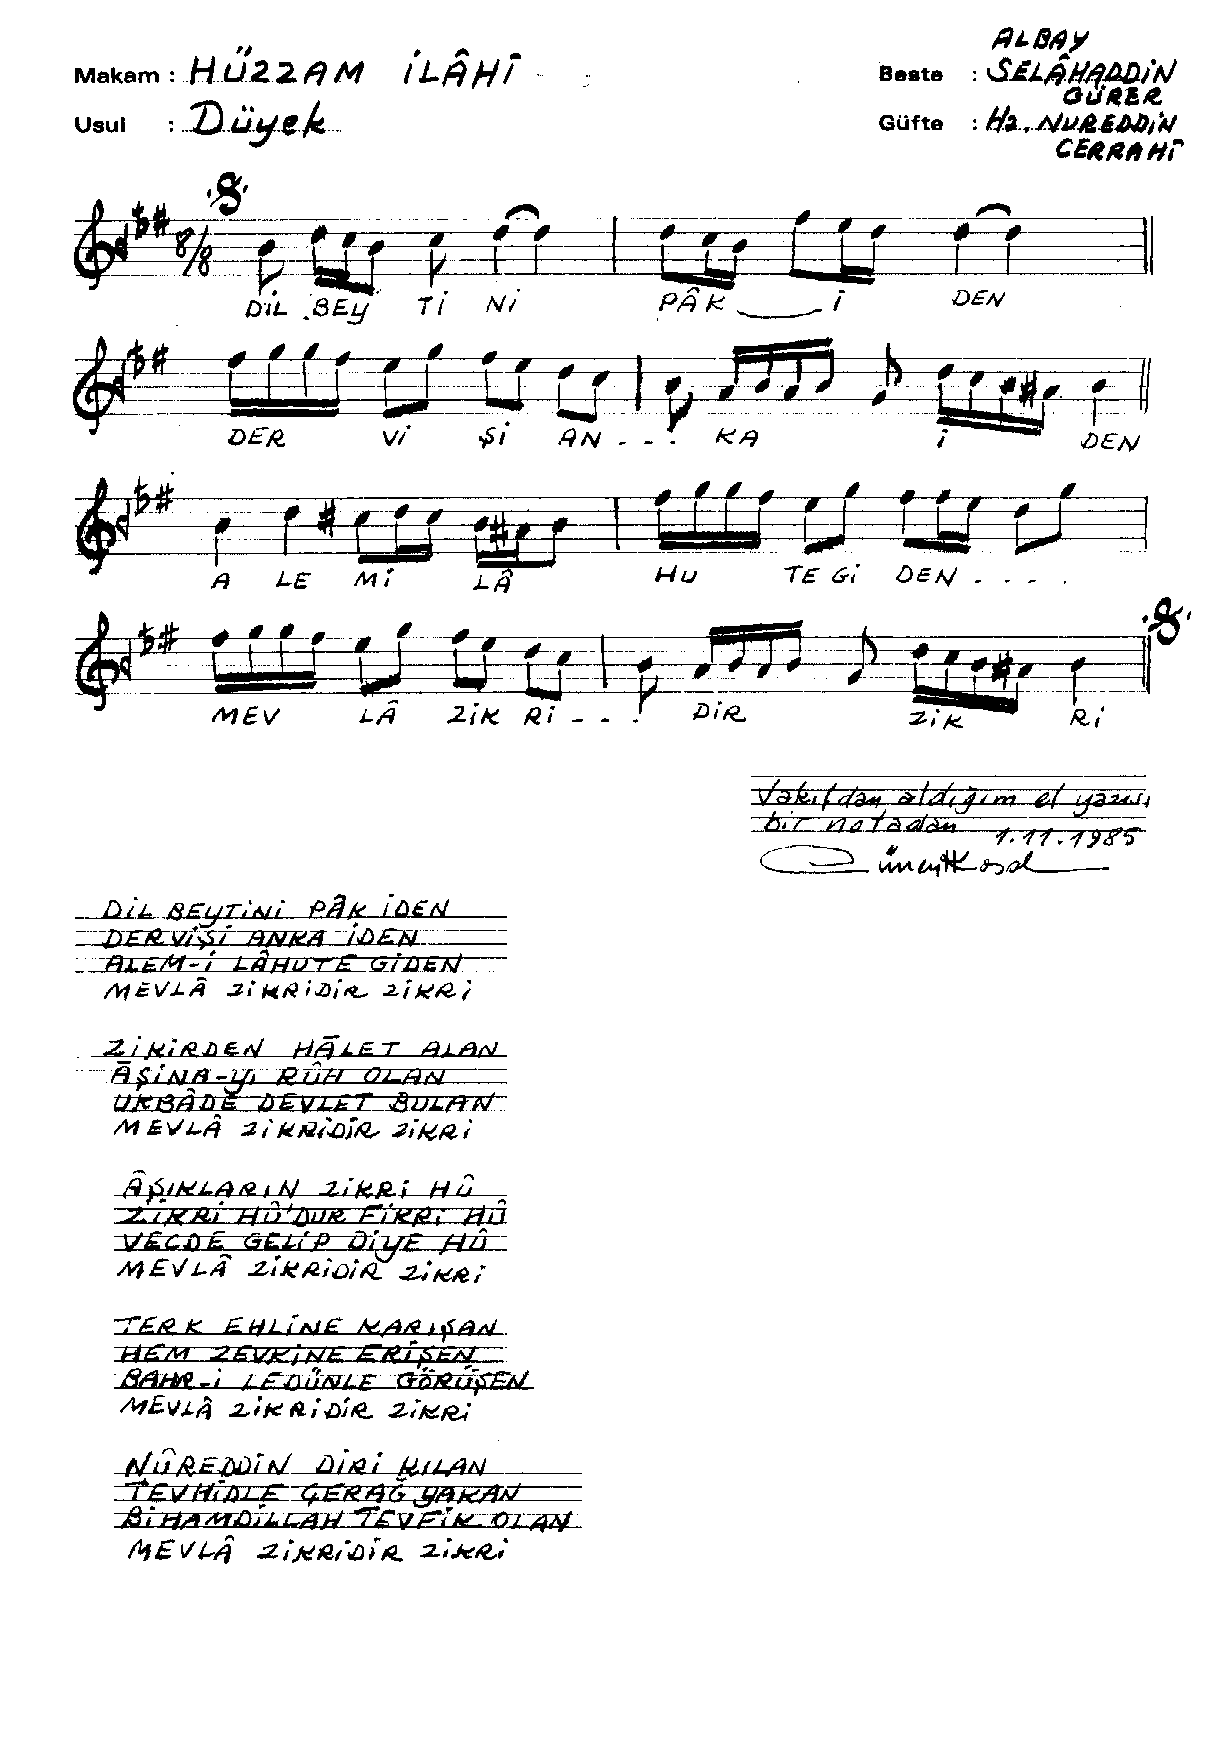 Makam : HÜZZAM İLÂHÎ
Usul : Düyek
ALBAY
Beste : SELÂHADDİN
GÜRER
Güfte : Hz. NUREDDİN
CERRAHÎ
8/8
DİL BEY Tİ Nİ PÂK İ DEN
DER Vİ Şİ AN - - - KA İ DEN
A LE Mİ LÂ HU TE Gİ DEN - - - -
MEV LÂ ZİK Rİ - - - DİR ZİK Rİ
Vakıfdan aldığım el yazısı
bir notadan 1.11.1985
DİL BEYTİNİ PÂK İDEN
DERVİŞİ ANKA İDEN
ALEM-İ LÂHUTE GİDEN
MEVLÂ ZİKRİDİR ZİKRİ
ZİKİRDEN HĀLET ALAN
ĀŞİNA-Yı RÛH OLAN
UKBÂDE DEVLET BULAN
MEVLÂ ZİKRİDİR ZİKRİ
ÂŞIKLARIN ZİKRİ HÛ
ZİKRİ HÛ'DUR FİKRİ HÛ
VECDE GELİP DİYE HÛ
MEVLÂ ZİKRİDİR ZİKRİ
TERK EHLİNE KARIŞAN
HEM ZEVKİNE ERİŞEN
BAHR-İ LEDÜNLE GÖRÜŞEN
MEVLÂ ZİKRİDİR ZİKRİ
NÛREDDİN DİRİ KILAN
TEVHİDLE ÇERAĞ YAKAN
BİHAMDİLLAH TEVFİK OLAN
MEVLÂ ZİKRİDİR ZİKRİ